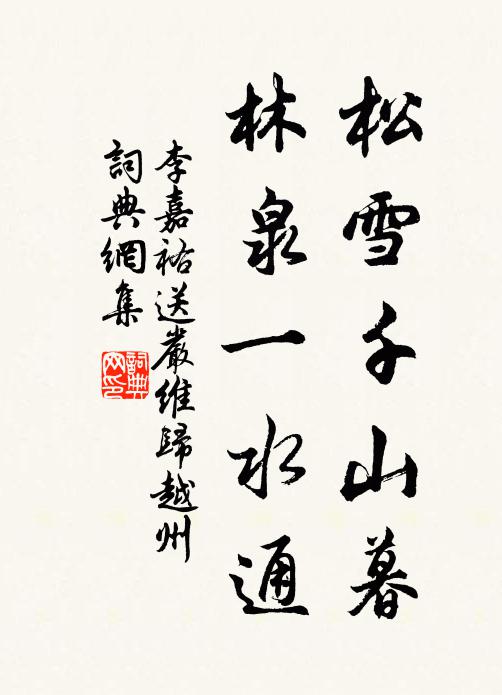 松雪千山暮
林泉一水通
李嘉祐送嚴維歸越州
詞典網集
詞典網印